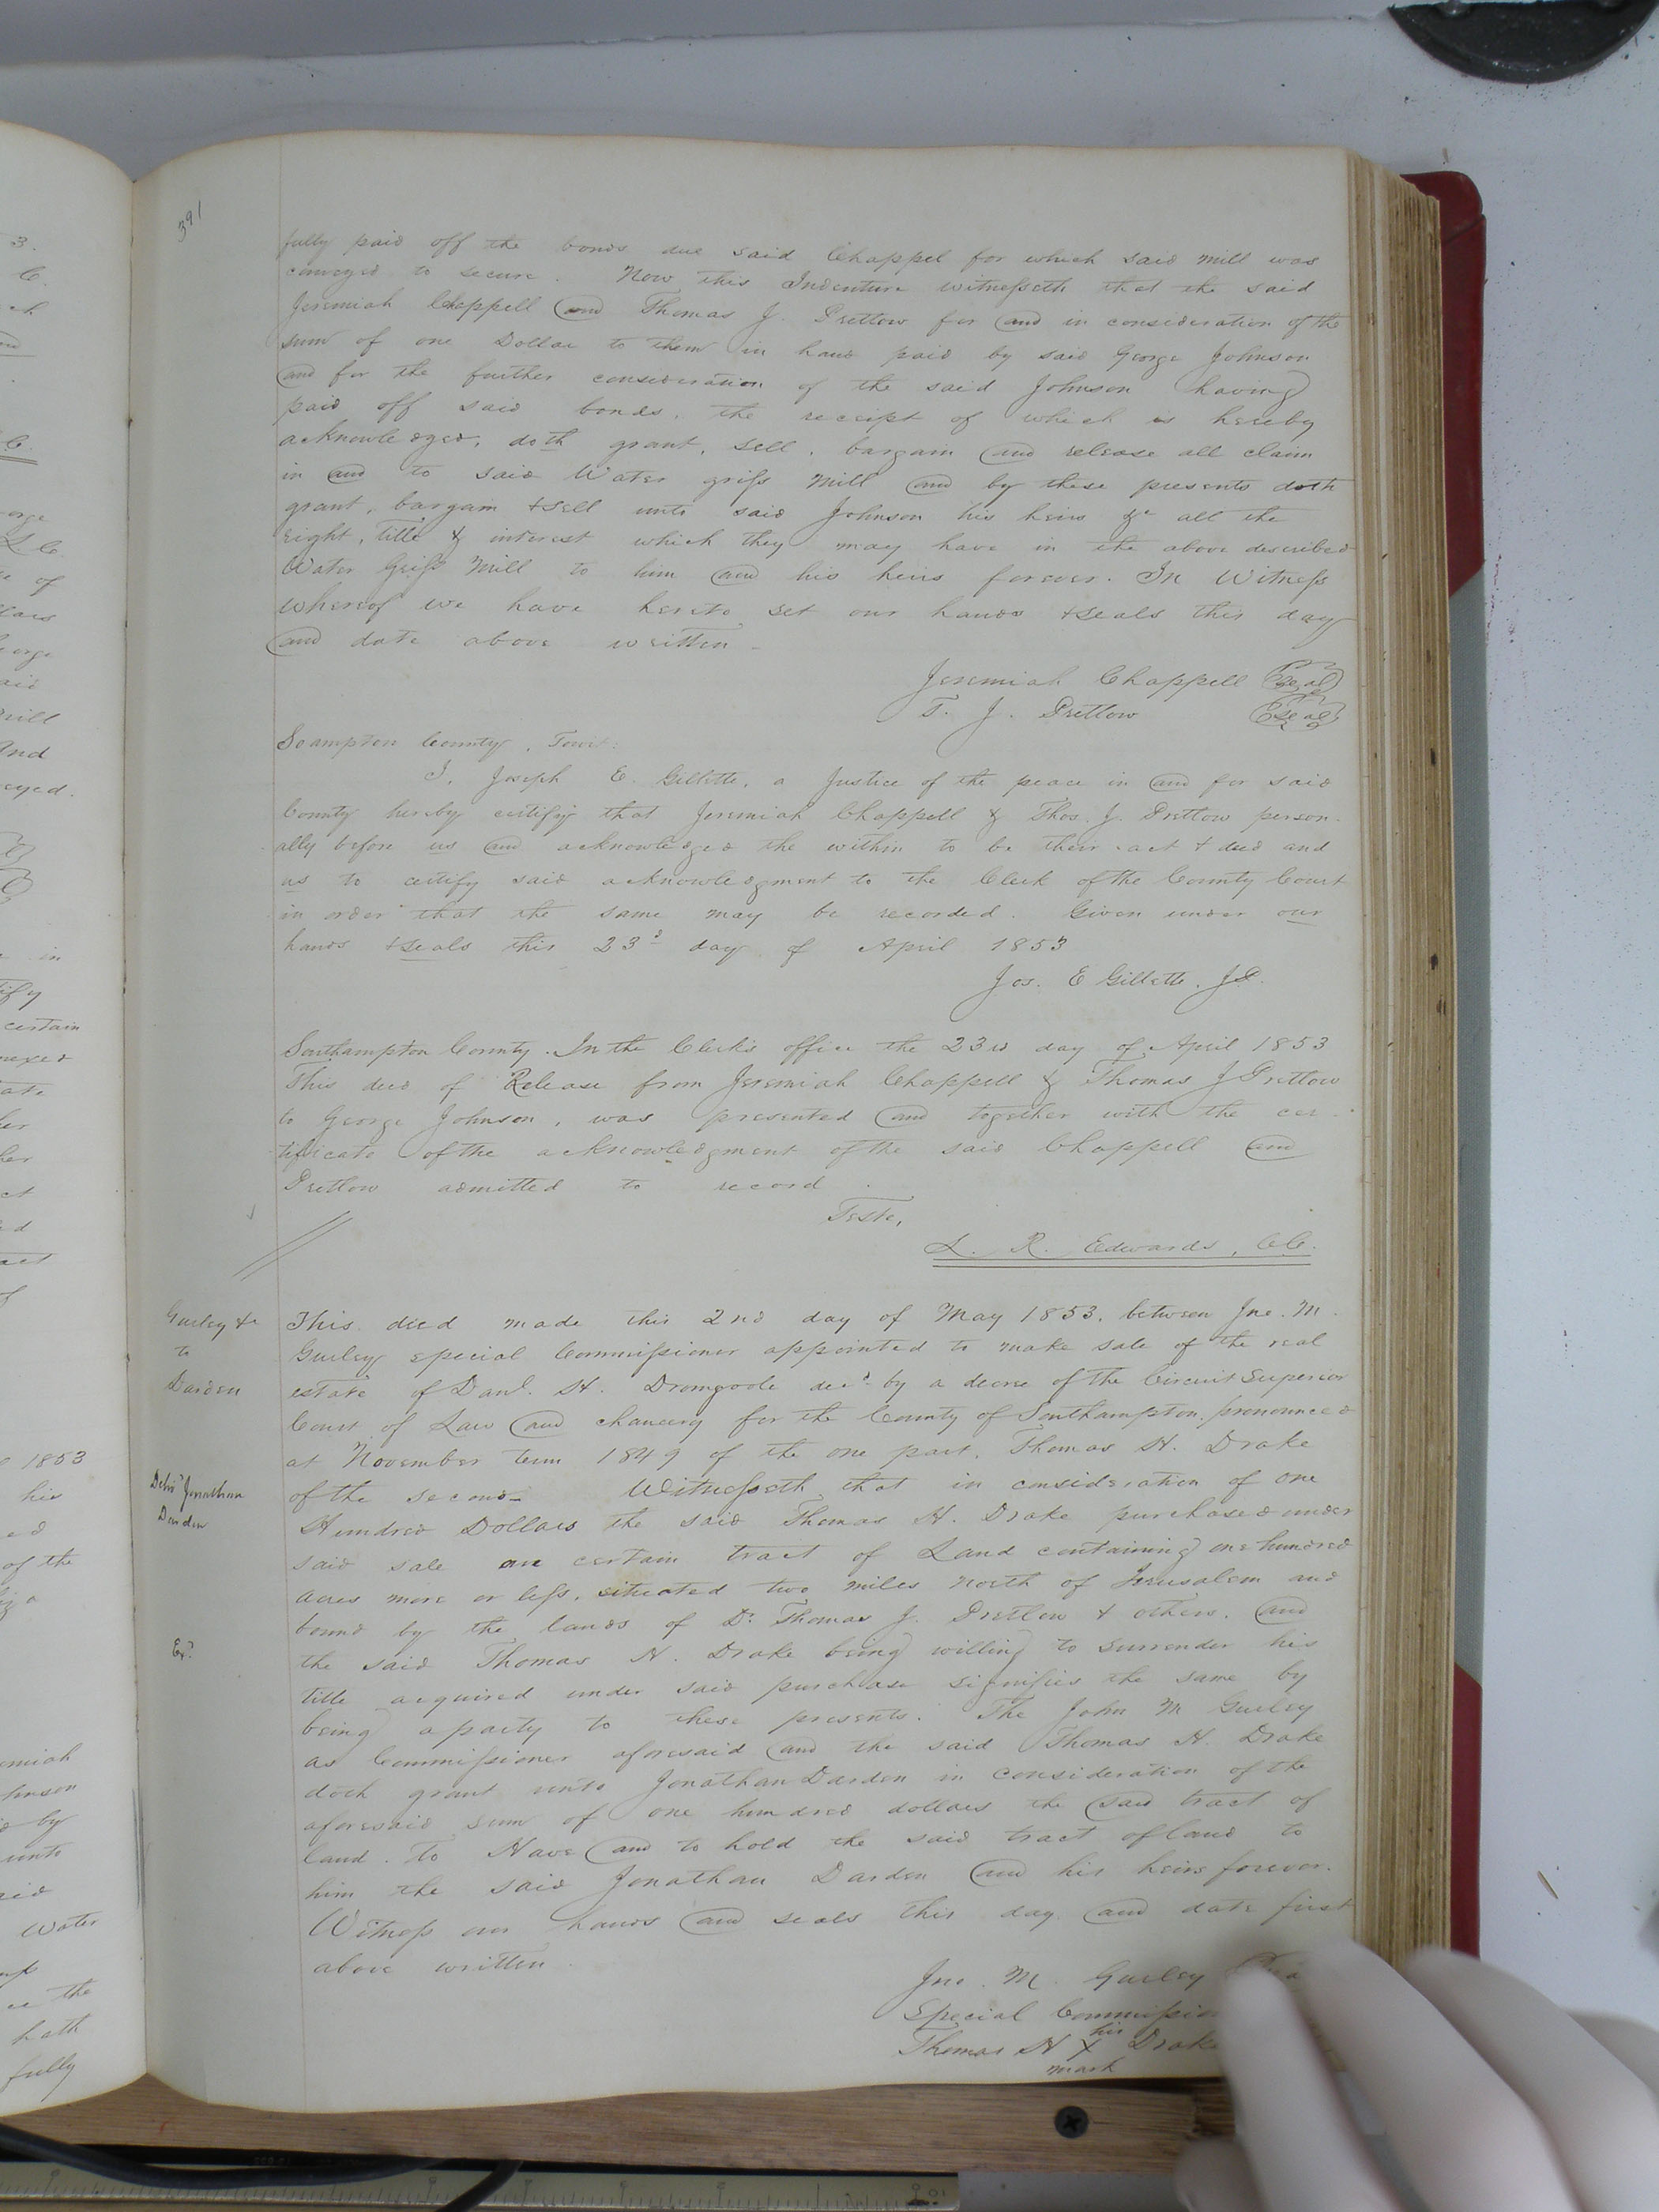 391
fully paid off the bonds due said Chappel for which said mill was
conveyed to secure. Now this Indenture witnesseth that the said
Jeremiah Chappell and Thomas J. Pretlow for and in consideration of the
sum of one Dollar to them in hand paid by said George Johnson
and for the further consideration of the said Johnson having
paid off said bonds, the receipt of which is hereby
acknowledged, doth grant, sell, bargain and release all claim
in and to said Water grist Mill and by these presents doth
grant, bargain & sell unto said Johnson his heirs &c all the
right, title & interest which they may have in the above described
Water Grist Mill to him and his heirs forever. In Witness
whereof we have hereto set our hands & seals this day
and date above written
Jeremiah Chappell Seal
T. J. Pretlow Seal
Soampton County, Towit:
I, Joseph E. Gillette, a Justice of the peace in and for said
County hereby certify that Jeremiah Chappell & Thos. J. Pretlow person-
ally before us and acknowledged the within to be their act & deed and
us to certify said acknowledgment to the Clerk of the County Court
in order that the same may be recorded. Given under our
hands & seals this 23d day of April 1853
Jos. E Gillette. J.P.
Southampton County. In the Clerk's office the 23rd day of April 1853
This deed of Release from Jeremiah Chappell & Thomas J Pretlow
to George Johnson, was presented and together with the cer-
tificate of the acknowledgment of the said Chappell and
Pretlow admitted to record.
Teste,
L. R. Edwards, C.C.
Gurley &c
to
Darden
Deld Jonathan
Darden
Exd
This deed made this 2nd day of May 1853, between Jno. M.
Gurley special Commissioner appointed to make sale of the real
estate of Danl. H. Dromgoole decd by a decree of the Circuit Superior
Court of Law and chancery for the County of Southampton, pronounced
at November term 1849 of the one part, Thomas H. Drake
of the second Witnesseth that in consideration of one
Hundred Dollars the said Thomas H. Drake purchased under
said sale an certain tract of Land containing one hundred
acres more or less, situated two miles north of Jerusalem and
bound by the lands of Dr. Thomas J. Pretlow & others, and
the said Thomas H. Drake being willing to surrender his
title acquired under said purchase signifies the same by
being a party to these presents. The John M Gurley
as Commissioner aforesaid and the said Thomas H. Drake
doth grant unto Jonathan Darden in consideration of the
aforesaid sum of one hundred dollars the said tract of
land. To Have and to hold the said tract of land to
him the said Jonathan Darden and his heirs forever.
Witness our hands and seals this day and date first
above written.
Jno. M. Gurley
Special Commissio
Thomas H his X mark Drake